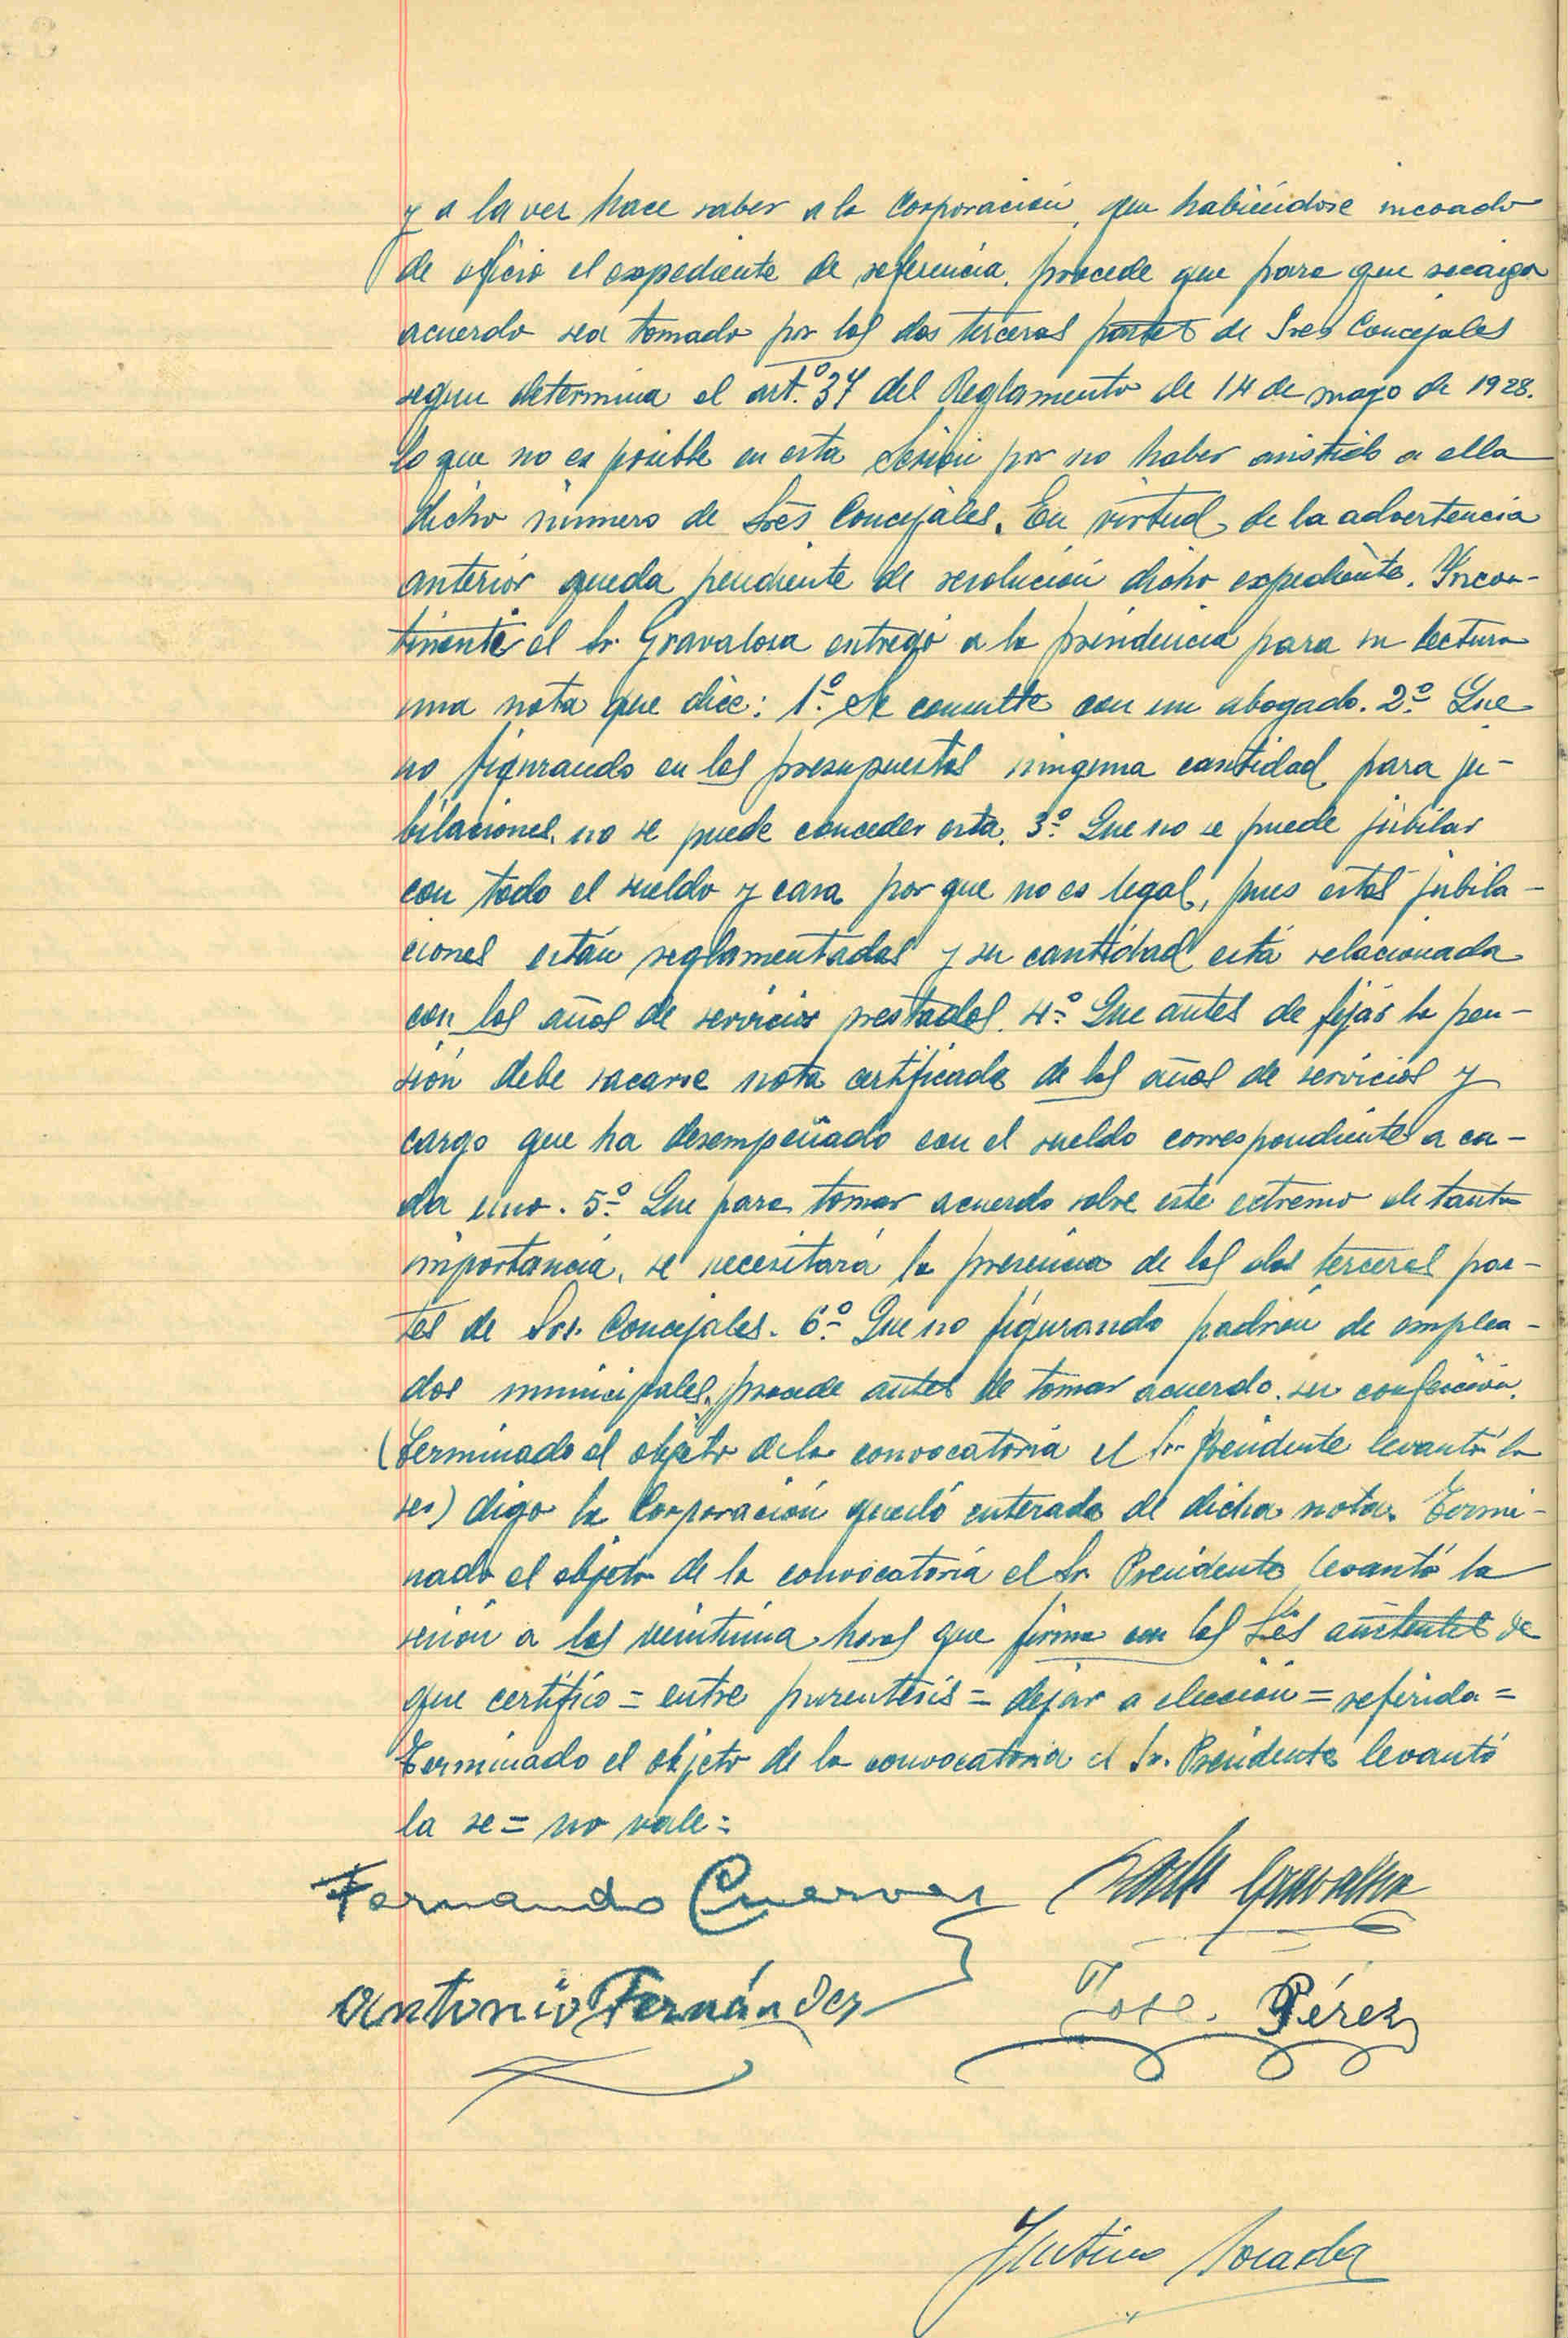 y a la vez hace saber a la Corporación, que habiéndose incoado
de oficio el expediente de referencia, procede que para que recaiga
acuerdo sea tomado por las dos terceras partes de Sres Concejales
segun determina el artº. 37 del Reglamento de 14 de mayo de 1928.
lo que no es posible en esta Sesión por no haber asistido a ella
dicho número de Sres Concejales. En virtud de la advertencia
anterior queda pendiente de resolución dicho expediente. Incon-
tinente el Sr. Gravalosa entregó a la presidencia para su lectura
una nota que dice: 1º. Se consulte con un abogado. 2º. Que
no figurando en los presupuestos ninguna cantidad para ju-
bilaciones, no se puede conceder esta. 3º. Que no se puede jubilar
con todo el sueldo y casa por que no es legal, pues estas jubila-
ciones están reglamentadas y su cantidad está relacionada
con los años de servicios prestados. 4º. Que antes de fijar la pen-
sión debe sacarse nota certificada de los años de servicios y
cargo que ha desempeñado con el sueldo correspondiente a ca-
da uno. 5º. Que para tomar acuerdo sobre este extremo de tanta
importancia, se necesitará la presencia de las dos terceras par-
tes de Sres. Concejales. 6º. Que no figurando padrón de emplea-
dos municipales, procede antes de tomar acuerdo. su confección.
(Terminado el objeto de la convocatoria el Sr. Presidente levantó la
ses) digo la Corporación quedó enterada de dicha nota. Termi-
nado el objeto de la convocatoria el Sr. Presidente levantó la
sesión a las veintiuna horas que firma con los Sres asistentes de
que certifico = entre parentesis = dejar a elección = referida =
Terminado el objeto de la convocatoria el Sr. Presidente levantó
la se = no vale =
Fernando Cuervas Gravalosa
Antonio Fernández José Pérez